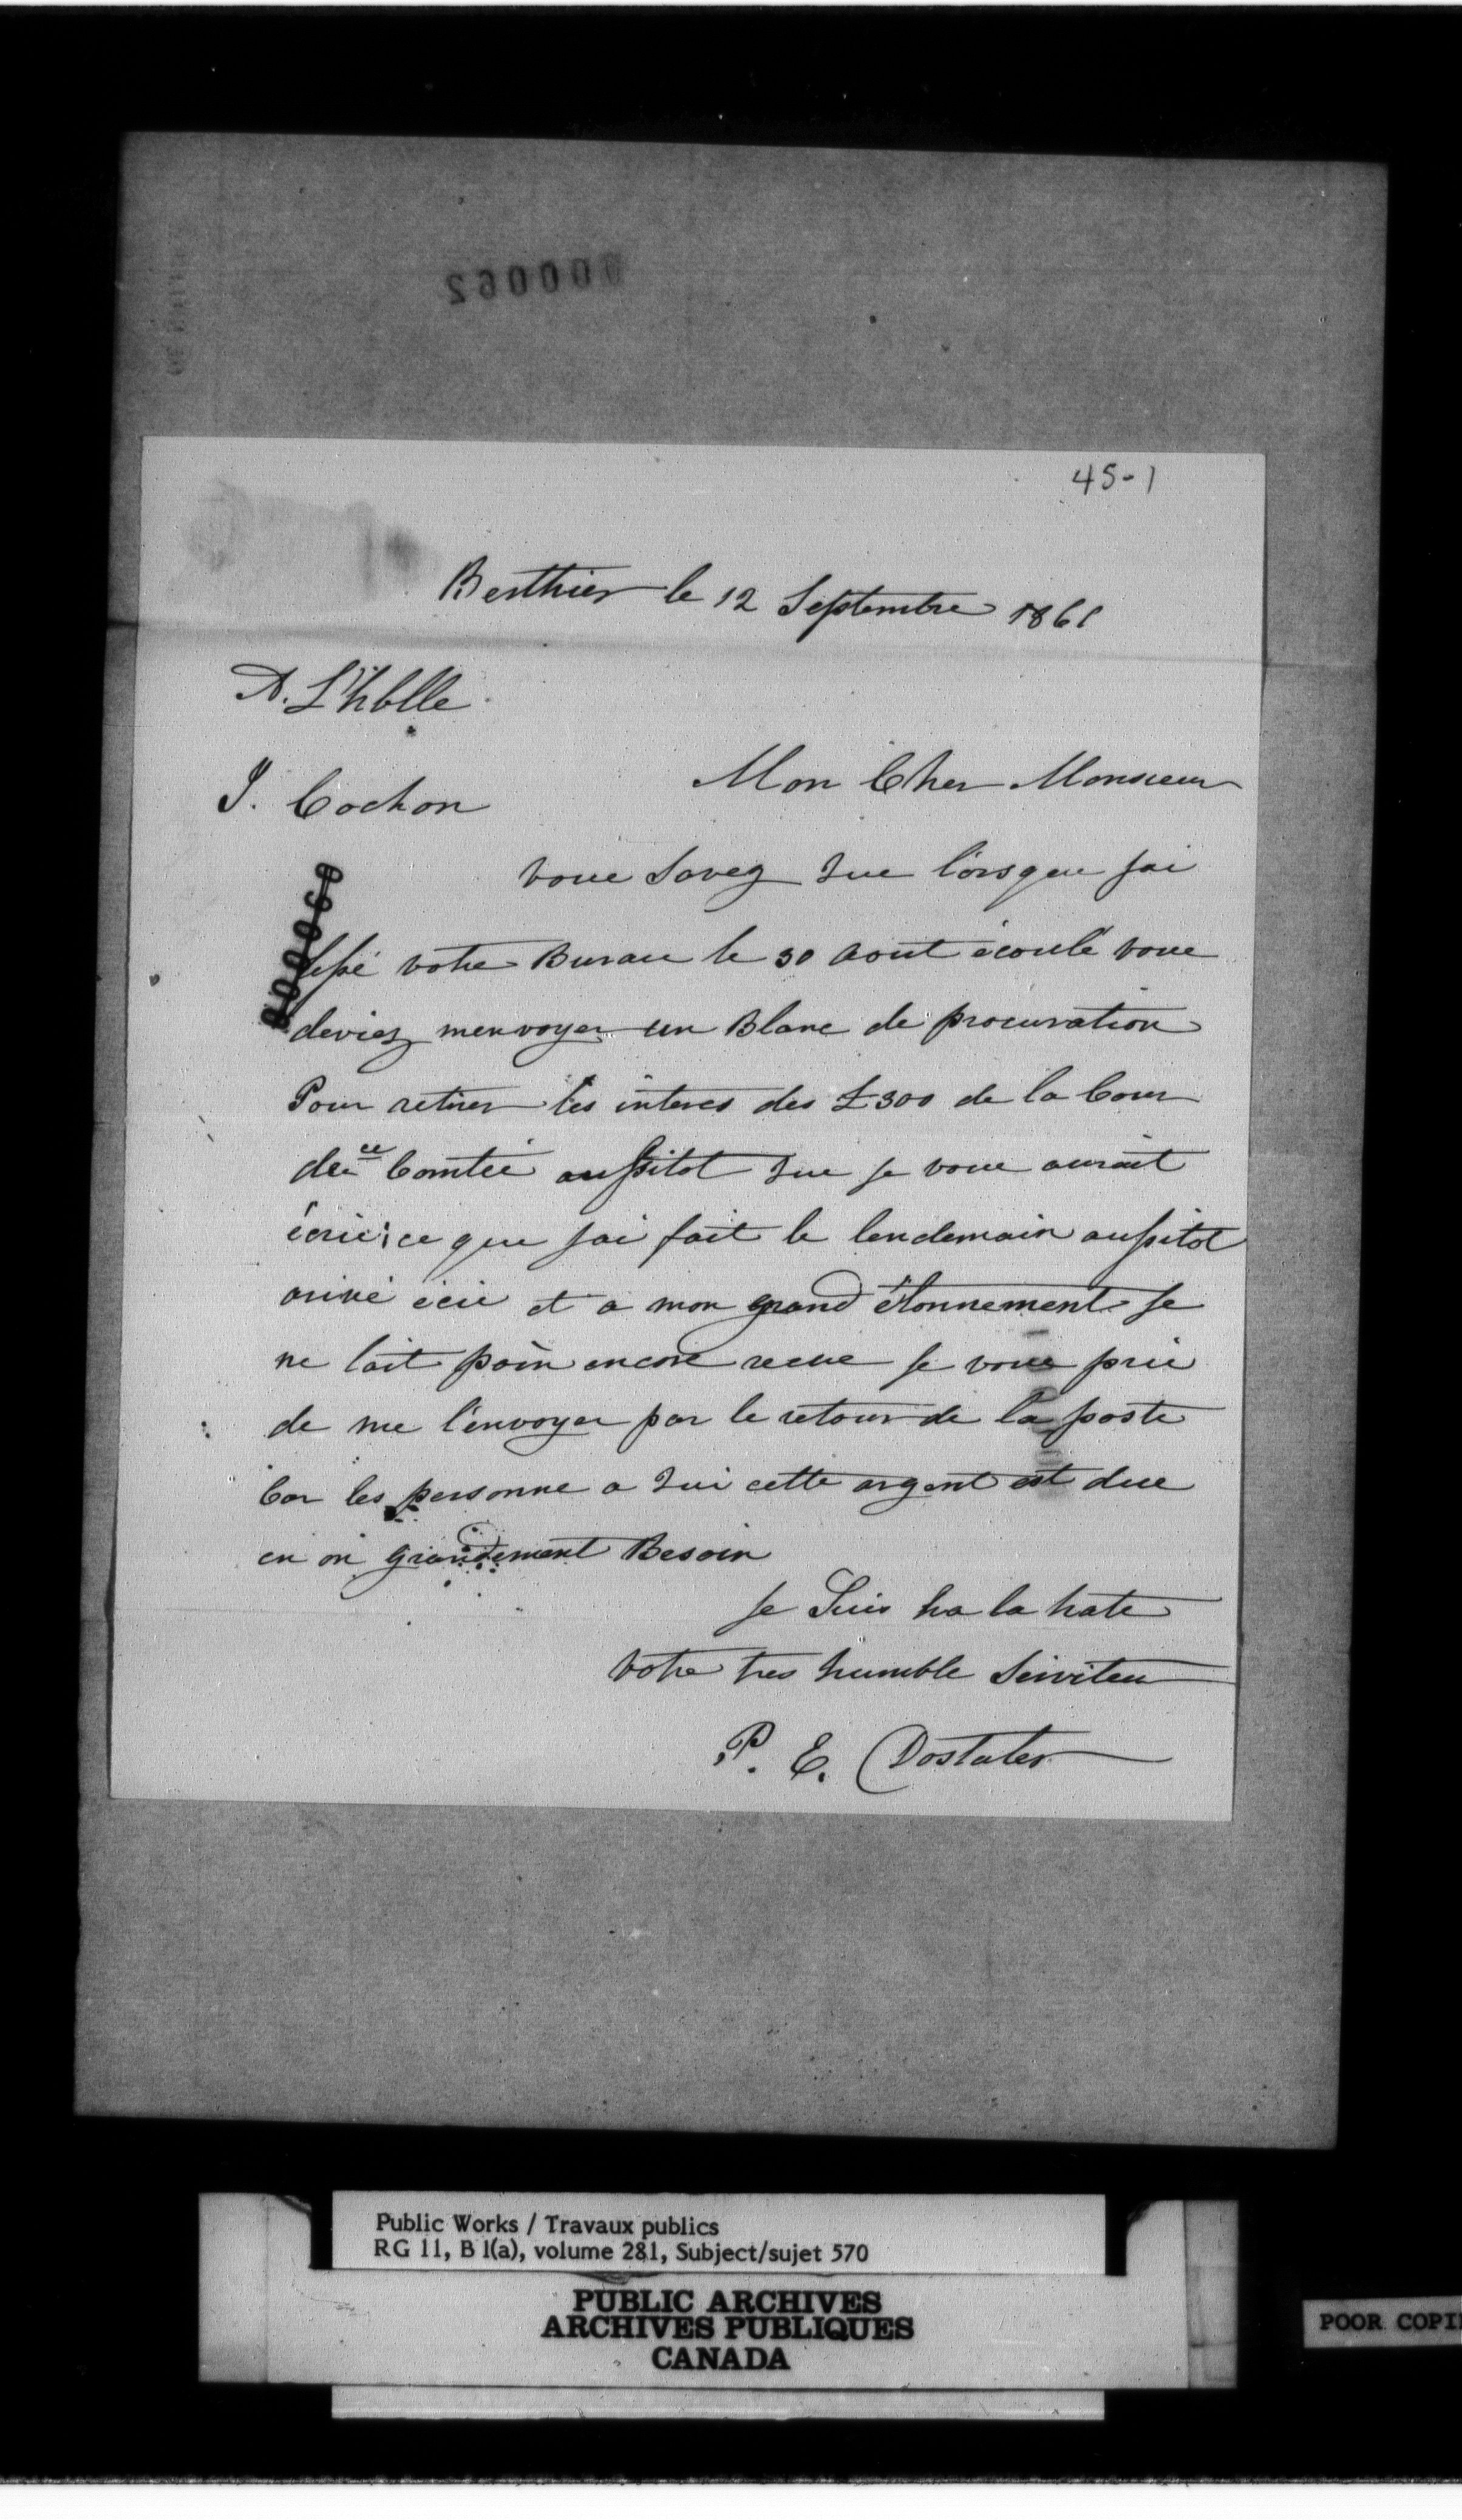 000062
45-1
Berthier le 12 Septembre 1861
A. L'hblle
J. Cochon
Mon Cher Monsieur
voue Savez que lorsque jai
lessé votre Bureau le 30 Aout écoulé voue
deviez menvoyer un Blanc de procuration
Pour retirer les interes des £300 de la Cour
de ce Comtée aussitot que je voue aurait
écrie; ce que jai fait le lendemain aussitot
arivé écie et a mon grand étonnement je
ne lait poin encore recue je voue prie
de me l'envoyer par le retour de la poste
Car les personne a qui cette argent est due
en on grandement Besoin
Je Suis ha la hate
Votre tres humble Serviteur
P. E. Dostaler
Public Works / Travaux publics
RG 11, B 1(a), volume 281, Subject/sujet 570
PUBLIC ARCHIVES
ARCHIVES PUBLIQUES
CANADA
POOR COPI